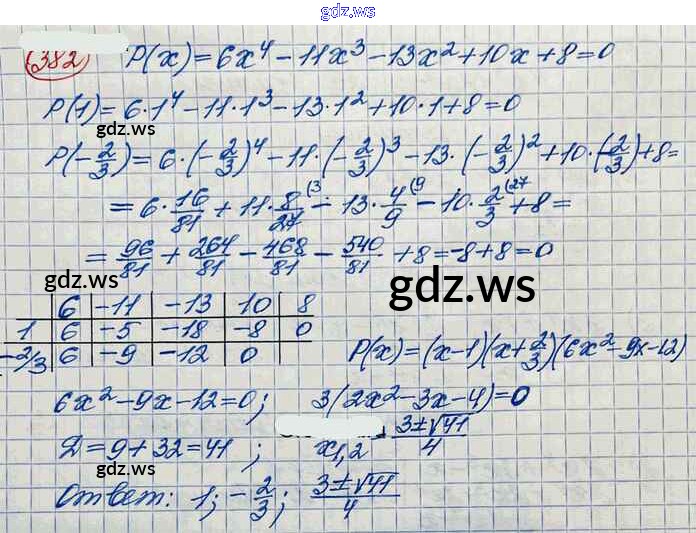 gdz.ws
382 P(x)=6x⁴-11x³-13x²+10x+8=0
P(1)=6·1⁴-11·1³-13·1²+10·1+8=0
gdz.ws
P(-2/3)=6·(-2/3)⁴-11·(-2/3)³-13·(-2/3)²+10·(-2/3)+8=
=6·16/81+11·8/27⁽³-13·4/9⁽⁹-10·2/3⁽²⁷+8=
=96/81+264/81-468/81-540/81+8=-8+8=0
gdz.ws gdz.ws
6 -11 -13 10 8
1 6 -5 -18 -8 0
-2/3 6 -9 -12 0 P(x)=(x-1)(x+2/3)(6x²-9x-12)
6x²-9x-12=0; 3(2x²-3x-4)=0
Д=9+32=41; x₁,₂ 3±√41/4
gdz.ws
Ответ: 1; -2/3; 3±√41/4
gdz.ws